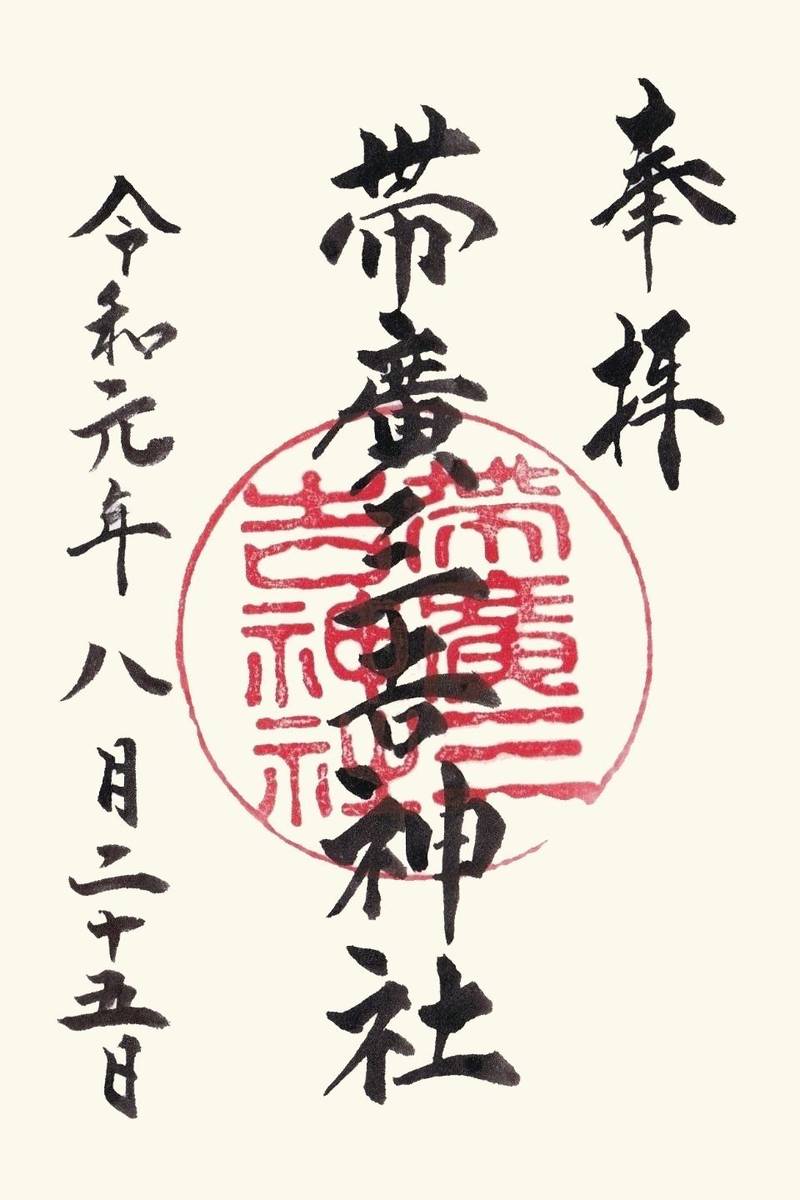 奉拝
帯廣三吉神社
帯廣三吉神社
令和元年八月二十五日